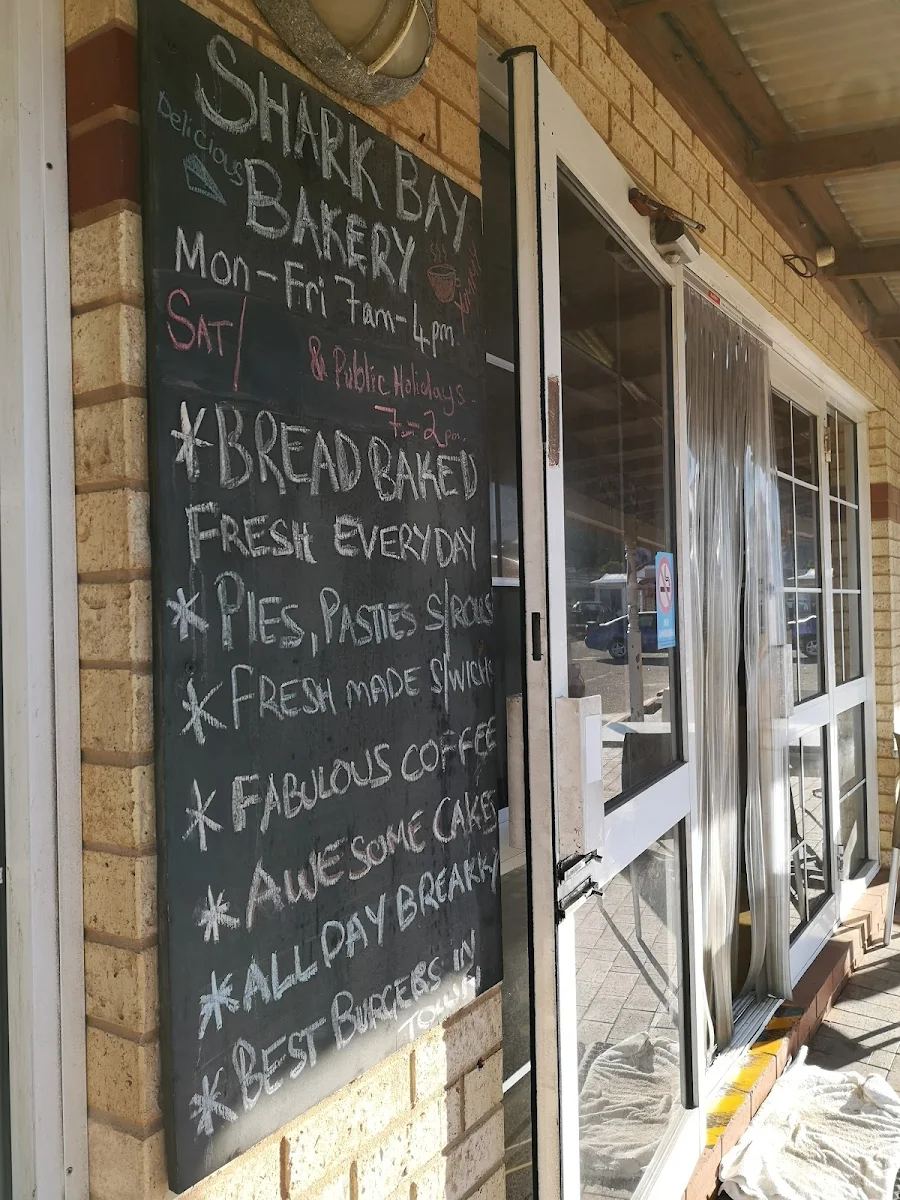 SHARK BAY
Delicious
BAKERY
YUMMY
Mon-Fri 7am-4pm
SAT/
& Public Holidays
7-2pm.
* BREAD BAKED
FRESH EVERYDAY
* PIES, PASTIES S/ROLLS
* FRESH MADE S/WICHS
* FABULOUS COFFEE
* AWESOME CAKES
* ALL DAY BREAKKY
* BEST BURGERS IN
TOWN